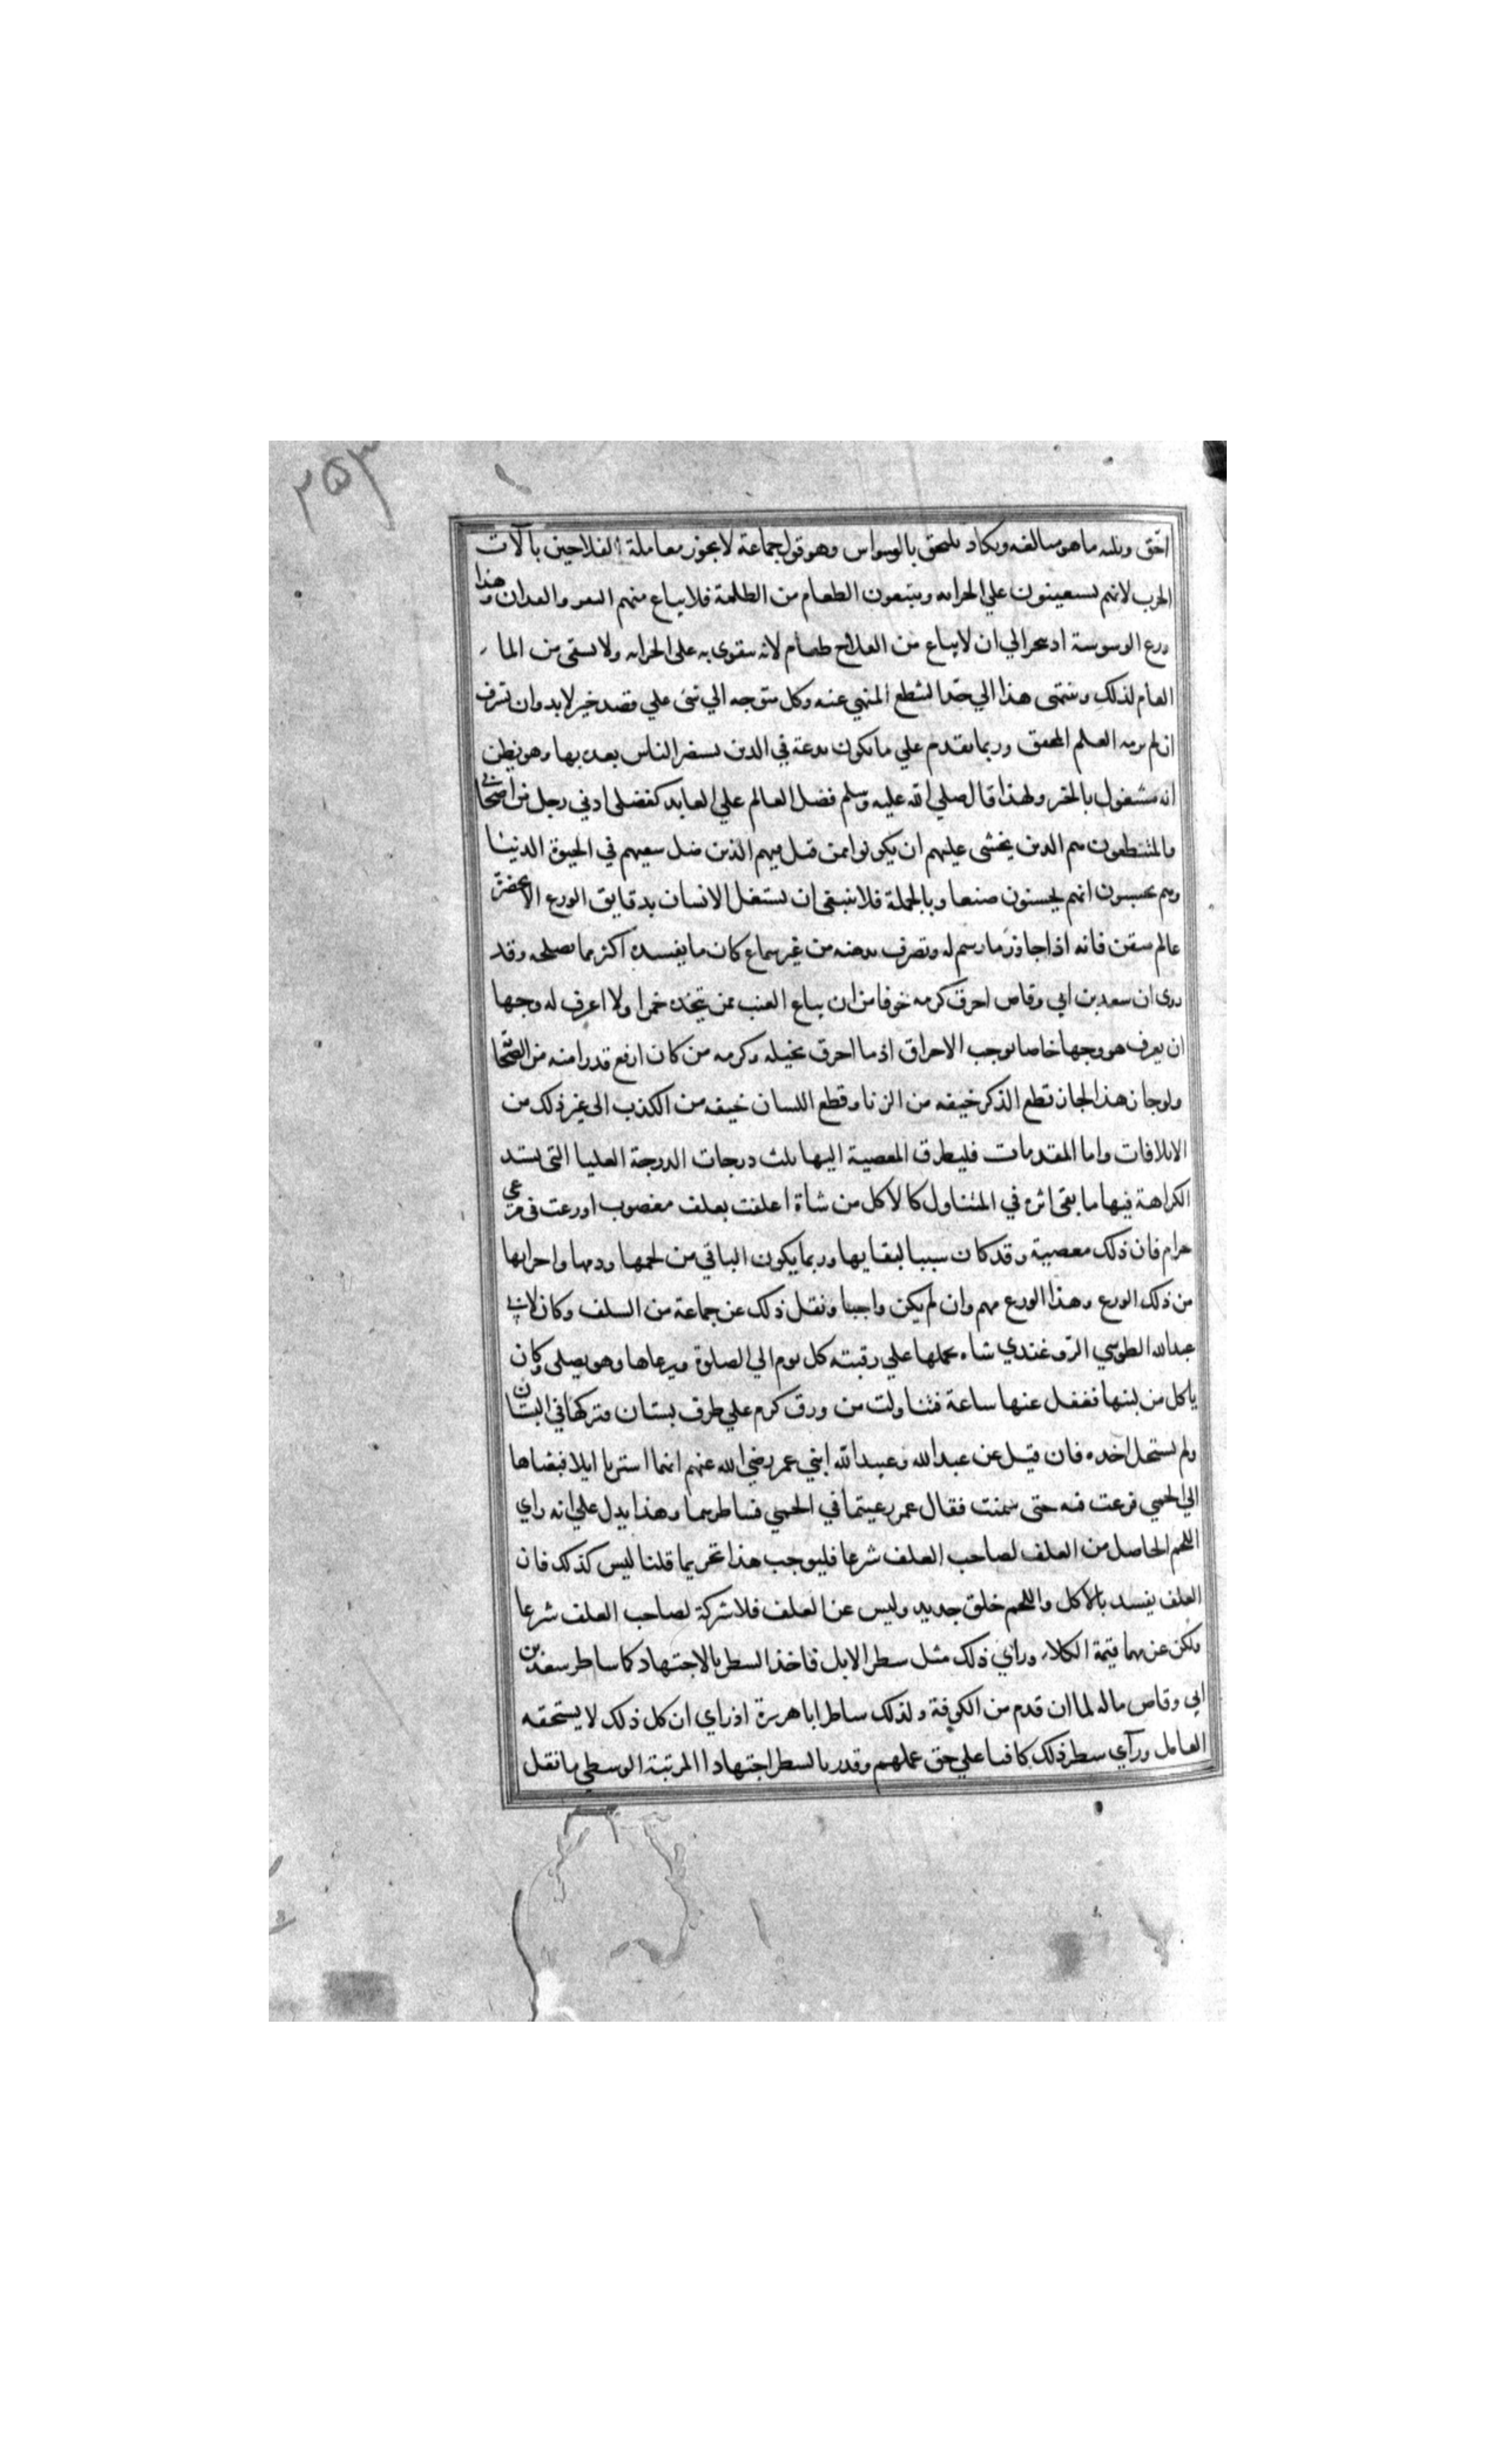 ٢٥٣
احق ويليه ما هو مبالغه ويكاد يلتحق بالوسواس وهو قول جماعة لا يجوز معاملة الفلاحين بآلات
الحرب لانهم يستعينون علي الحراثه ويبتعون الطعام من الظلمة فلا يباع منهم البقر والفدان وهذا
ورع الوسوسة اذ ينجر الي ان لا يباع من الفلاح طعام لانه يتقوي به علي الحراثه ولا يسقي من الماء
العام لذلك وينتهي هذا الي حد التنطع المنهي عنه وكل متوجه الي شي علي قصد خير لا بد وان يسرف
ان لم يزمه العلم المحقق وربما يقدم علي ما يكون بدعة في الدين يستضر الناس بعده بها وهو يظن
انه مشغول بالخير ولهذا قال صلي الله عليه وسلم فضل العالم علي العابد كفضلي ادني رجل من اصحابي
والمتنطعون هم الذين يخشي عليهم ان يكونوا ممن قيل فيهم الذين ضل سعيهم في الحيوة الدنيا
وهم يحسبون انهم يحسنون صنعا وبالجملة فلا ينبغي ان يشتغل الانسان بدقايق الورع الا بحضرة
عالم متقن فانه اذا جاوز ما رسم له وتصرف بذهنه من غير سماع كان ما يفسده اكثر مما يصلحه وقد
روي ان سعد بن ابي وقاص احرق كرمه خوفا من ان يباع العنب ممن يتخذه خمرا ولا اعرف له وجها
ان يعرف هو وجها خاصا يوجب الاحراق اذ ما احرق نخيله وكرمه من كان ارفع قدرا منه من الصحابة
ولو جاز هذا لجاز قطع الذكر خيفه من الزنا وقطع اللسان خيفه من الكذب الي غير ذلك من
الاتلافات واما المقدمات فليطرق المعصية اليها ثلث درجات الدرجة العليا التي يشتد
الكراهة فيها ما بقي اثره في المتناول كالاكل من شاة اعلفت بعلف مغصوب او رعت في مرعي
حرام فان ذلك معصية وقد كان سببا لبقايها وربما يكون الباقي من لحمها ودمها واجزايها
من ذلك الورع وهذا الورع مهم وان لم يكن واجبا ونقل ذلك عن جماعة من السلف وكان لابي
عبد الله الطوسي التروغندي شاه يحملها علي رقبته كل يوم الي الصلوة ويرعاها وهو يصلي وكان
ياكل من لبنها فغفل عنها ساعة فتناولت من ورق كرم علي طرف بستان فتركها في البستان
ولم يستحل اخذه فان قيل عن عبد الله وعبيد الله ابني عمر رضي الله عنهم انهما اشتريا ابلا فبعثاها
الي الحمي فرعت فيه حتي سمنت فقال عمر رعيتما في الحمي فشاطرهما وهذا يدل علي انه راي
اللحم الحاصل من العلف لصاحب العلف شرعا فليوجب هذا تحريما قلنا ليس كذلك فان
العلف يفسد بالاكل واللحم خلق جديد وليس عن العلف فلا شركة لصاحب العلف شرعا
ولكن عن مهما قيمة الكلاء وراي ذلك مثل شطر الابل فاخذ الشطر بالاجتهاد كما ساطر سعد بن
ابي وقاص ماله لما ان قدم من الكوفة ولذلك ساطر ابا هريرة اذ راي ان كل ذلك لا يستحقه
العامل ورآي شطر ذلك كافيا علي حق عملهم وقدر بالشطر اجتهادا المرتبة الوسطي ما نقل